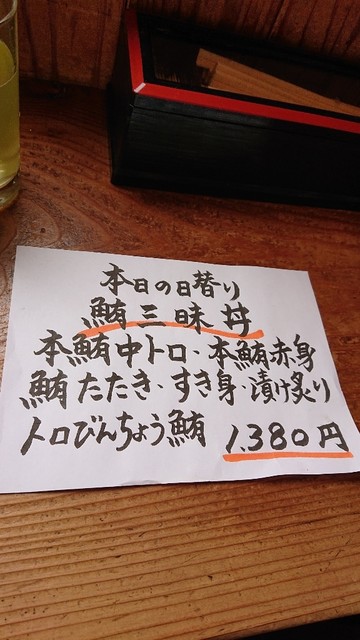 本日の日替り
鮪三昧丼
本鮪中トロ・本鮪赤身
鮪たたき・すき身・漬け炙り
トロびんちょう鮪 1.380円